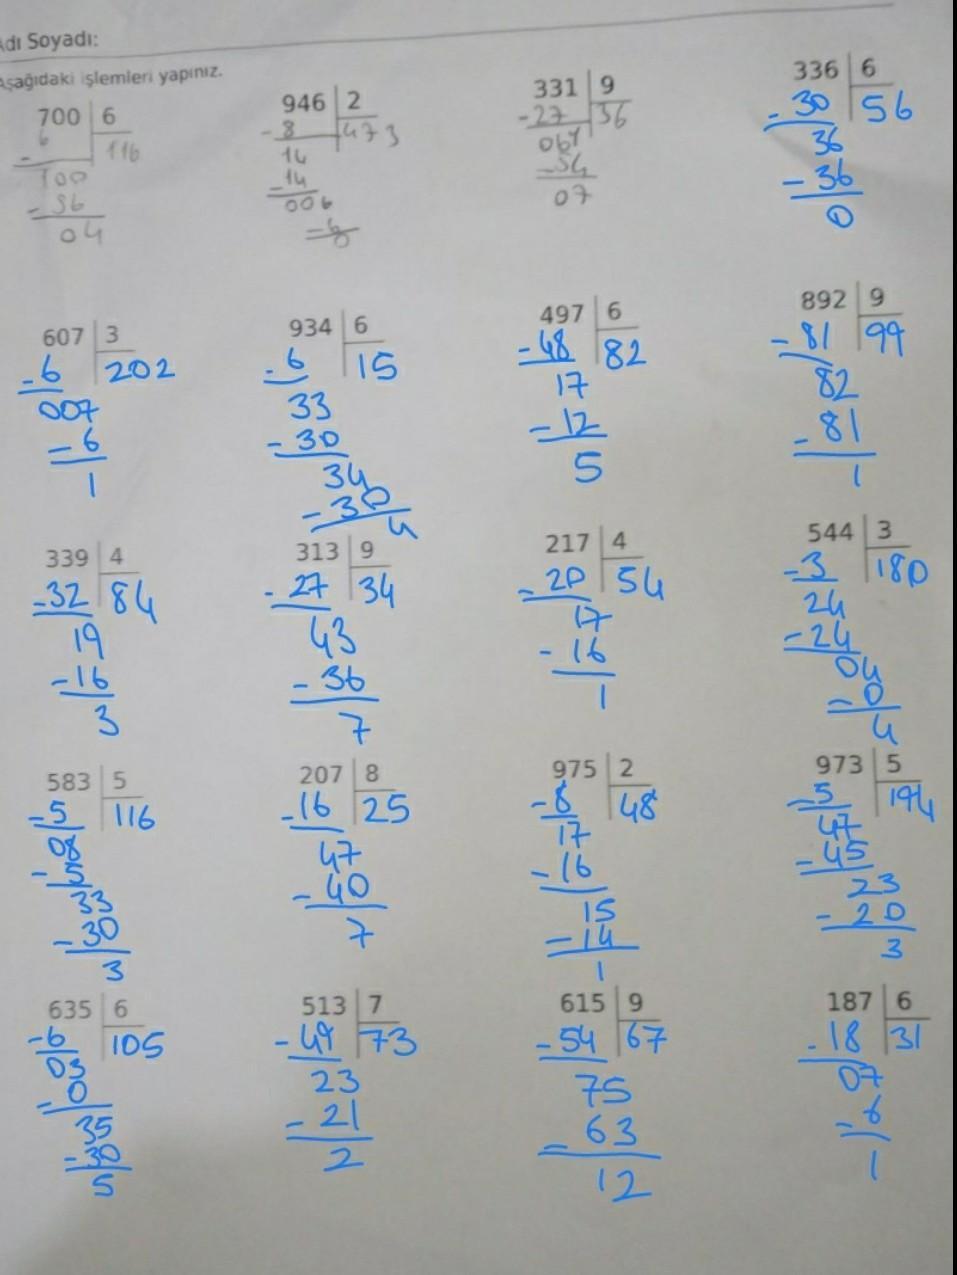 Adı Soyadı:
Aşağıdaki işlemleri yapınız.
700 6
6 116
-
100
- 96
04
946 2
- 8 473
14
- 14
006
- 6
0
331 9
- 27 36
061
- 54
07
336 6
- 30 56
36
- 36
0
607 3
- 6 202
007
- 6
1
934 6
- 6 15
33
- 30
34
- 30
4
497 6
- 48 82
17
- 12
5
892 9
- 81 99
82
- 81
1
339 4
- 32 84
19
- 16
3
313 9
- 27 34
43
- 36
7
217 4
- 20 54
17
- 16
1
544 3
- 3 180
24
- 24
04
- 0
4
583 5
- 5 116
08
- 5
33
- 30
3
207 8
- 16 25
47
- 40
7
975 2
- 8 48
17
- 16
15
- 14
1
973 5
- 5 194
47
- 45
23
- 20
3
635 6
- 6 105
03
- 0
35
- 30
5
513 7
- 49 73
23
- 21
2
615 9
- 54 67
75
- 63
12
187 6
- 18 31
07
- 6
1